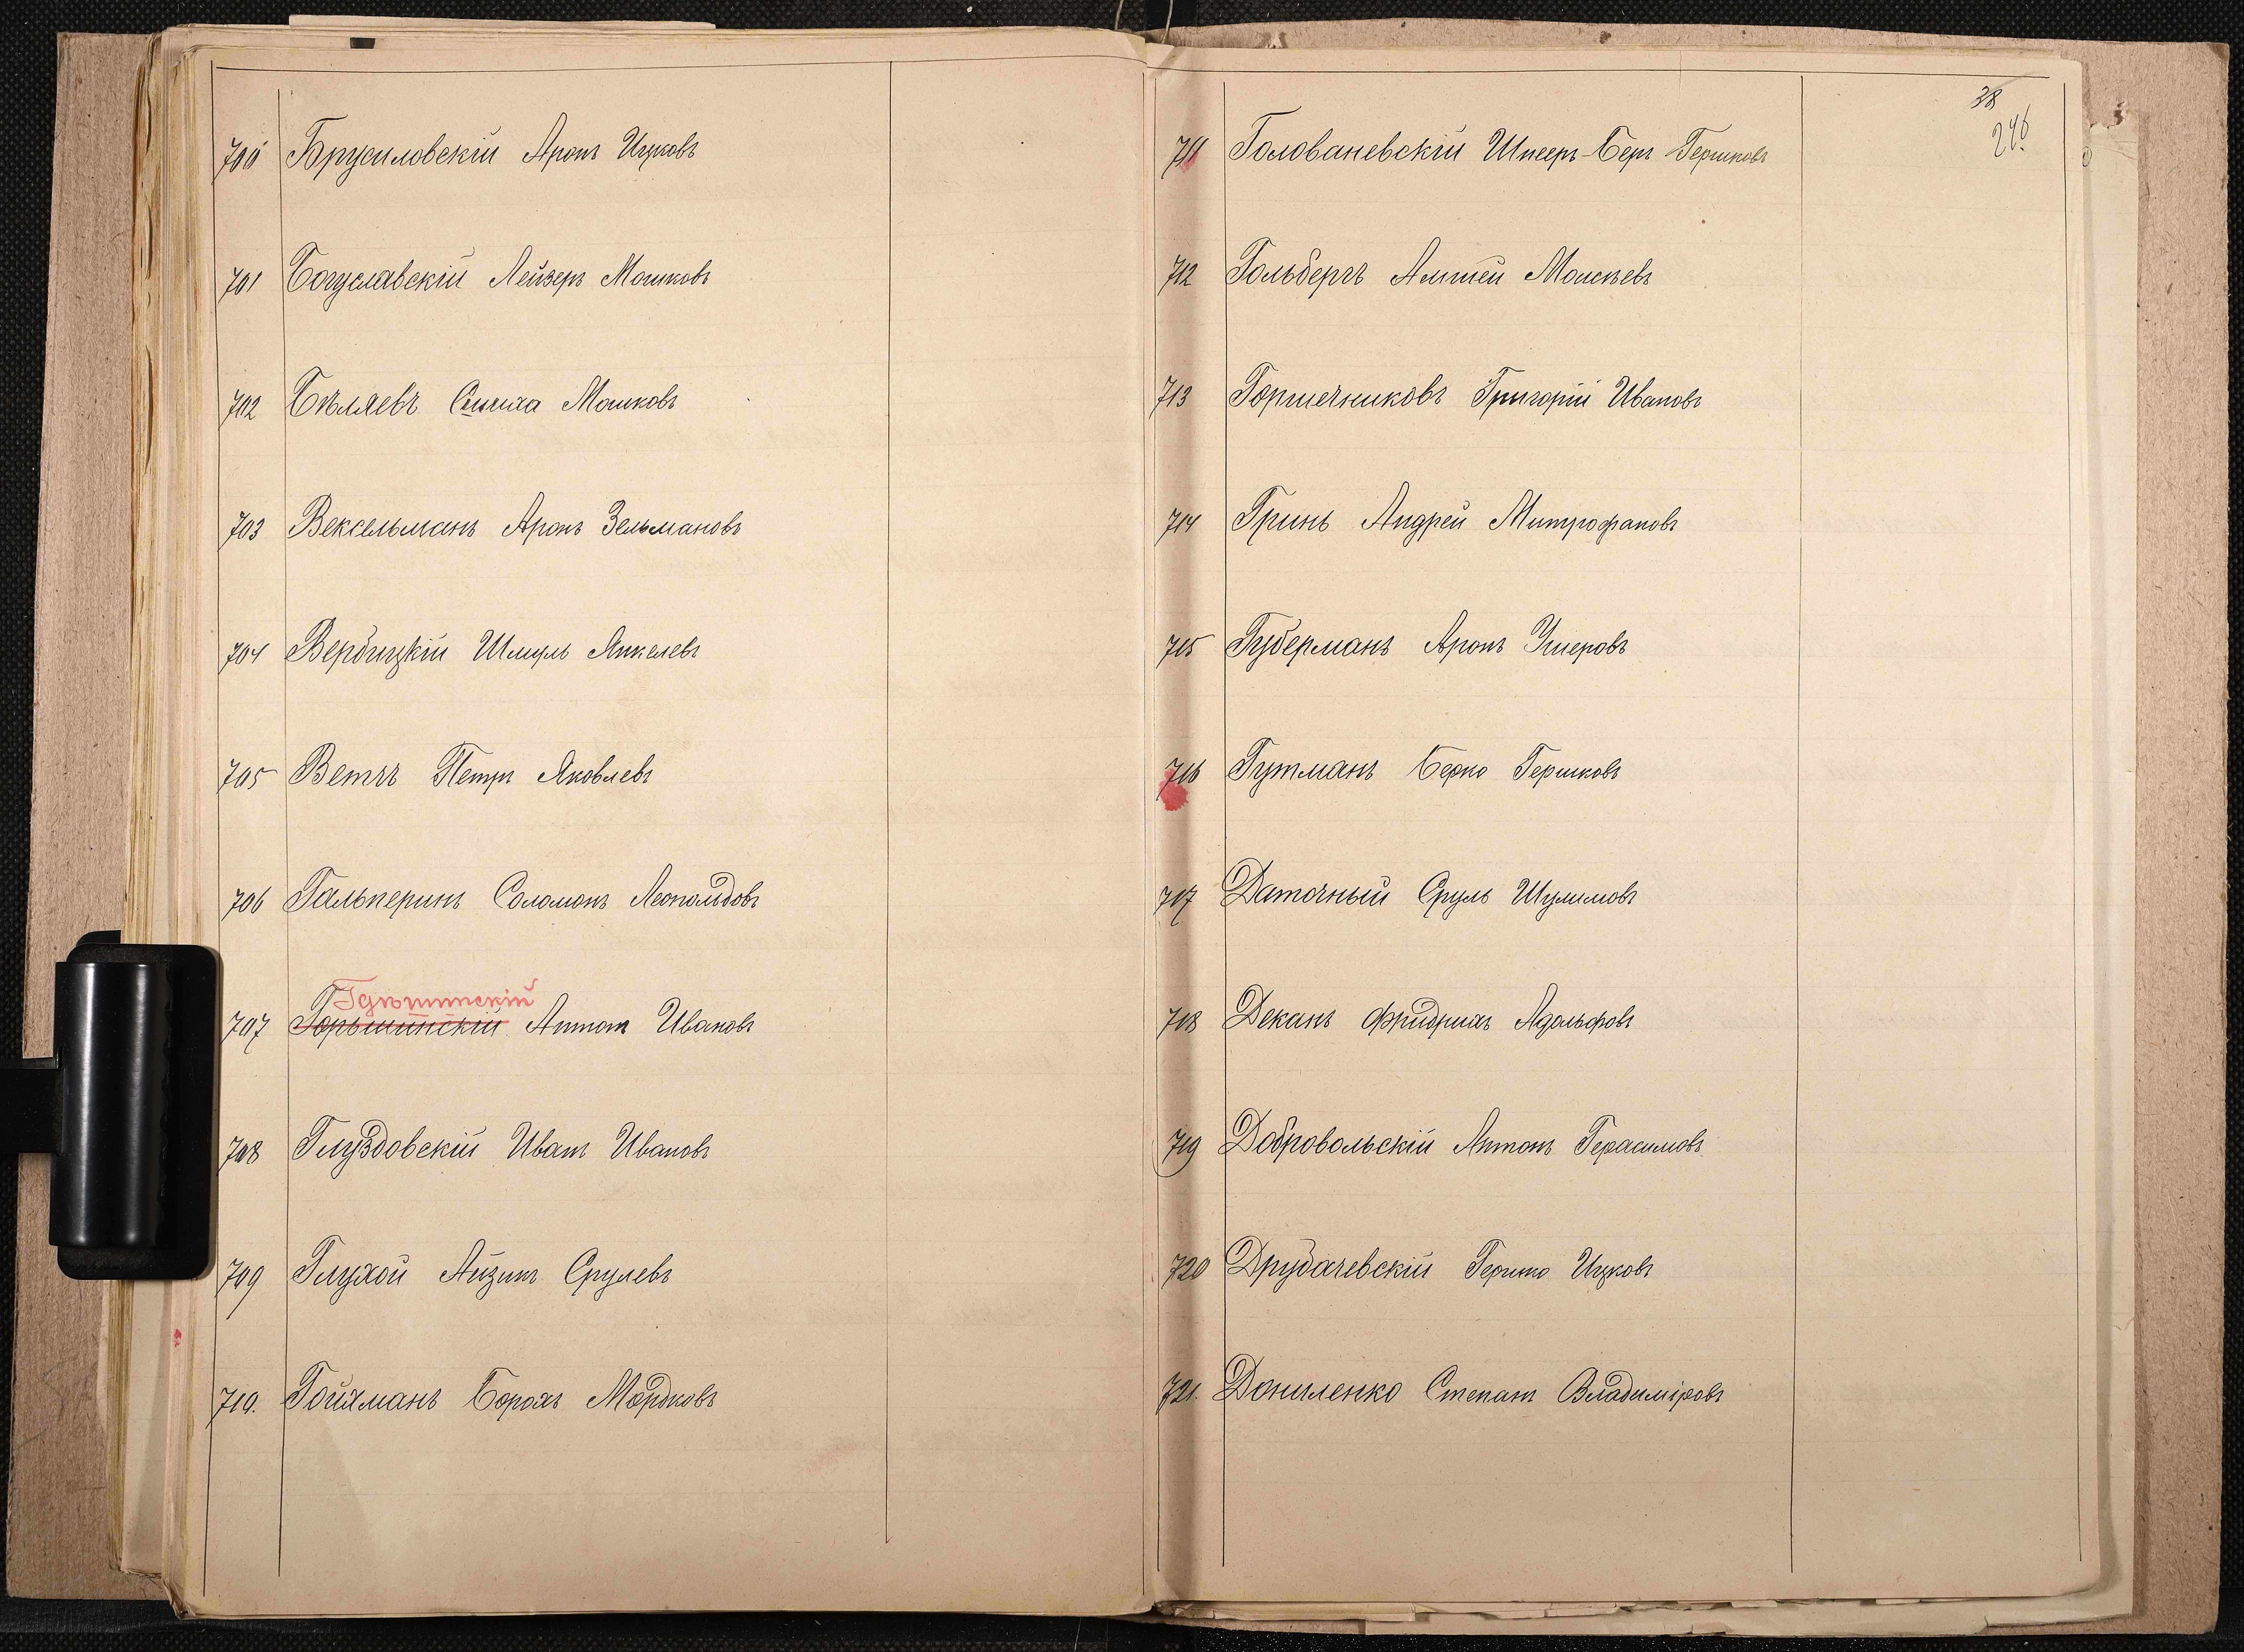 700 Брусиловскій Аронъ Ицковъ
701 Богуславскій Лейзеръ Мошковъ
702 Бѣляевъ Симха Мошковъ
703 Вексельманъ Аронъ Зельмановъ
704 Вербицкій Шмуль Янкелевъ
705 Петръ Яковлевъ
706 Гальперинъ Соломонъ Леопольдовъ
Гдѣшинскій
707 Горьшинскій Антонъ Ивановъ
708 Глуздовскій Иванъ Ивановъ
709 Глухой Айзикъ Срулевъ
710. Гойхманъ Борохъ Мордковъ
38
246
711 Голованевскій Берг Гершковъ
712 Гольбергъ Моисѣевъ
713 Горшечниковъ Григорій Ивановъ
714 Гринь Андрей Митрофановъ
715 Губерманъ Аронъ Ушеровъ
716 Гутманъ Берко Гершковъ
717 Даточный Сруль Шулимовъ
718 Деканъ Фридрихъ Адольфовъ
719 Добровольскій Антонъ Герасимовъ
720 Друбачевскій Гершко Ицковъ
721. Даниленко Степанъ Владиміровъ